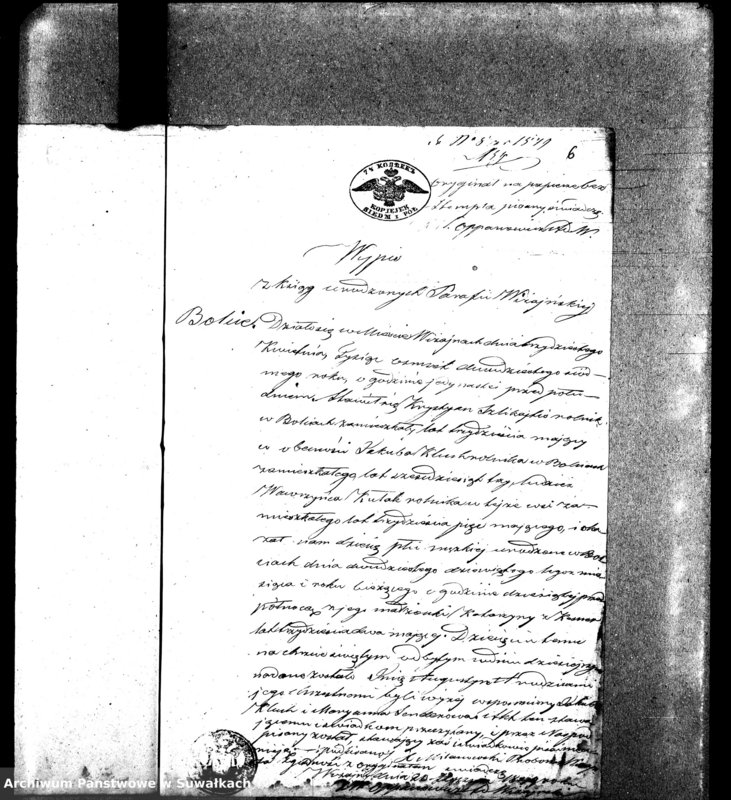 6
7½ KOPEEK
KOPIEJEK
SIEDM I PÓŁ
oryginał na papierze bez
stempla pisany, świadczę
Wypis
z Xiąg urodzonych Parafii Wiżajńskiej
Bolcie. Działo się w Mieście Wiżajnach dnia trzydziestego
Kwietnia, Tysiąc ośmset dwudziestego siód-
mego roku, o godzinie jedynastej przed połu-
dniem, Stawił się Krystyan rolnik
w Bolciach zamieszkały, lat trzydzieścia mający
w obecności Jakuba rolnika w Bolciach
zamieszkałego, lat sześćdziesiąt tudzież
Wawrzyńca Kulak rolnika w tejże wsi za-
mieszkałego lat trzydzieścia pięć mającego, i oka-
zał nam dziecię płci męzkiej urodzone w Bol-
ciach dnia dwudziestego dziewiątego tegoż mie-
siąca i roku bieżącego o godzinie dziesiątej przed
północą, z jego małżonki Katarzyny z
lat trzydzieścia dwa mającej. Dziecięciu temu
na chrzcie świętym odbytym w dniu dzisiejszym
nadane zostało Imię August, a rodzicami
jego chrzestnymi byli wyżej wspomniony Jakub
i Maryanna Akt ten stawa-
jącemu i świadkom przeczytany, i przez Nas pod-
pisany został, stawający zaś i świadkowie pisać nie u-
mieją
Archiwum Państwowe w Suwałkach